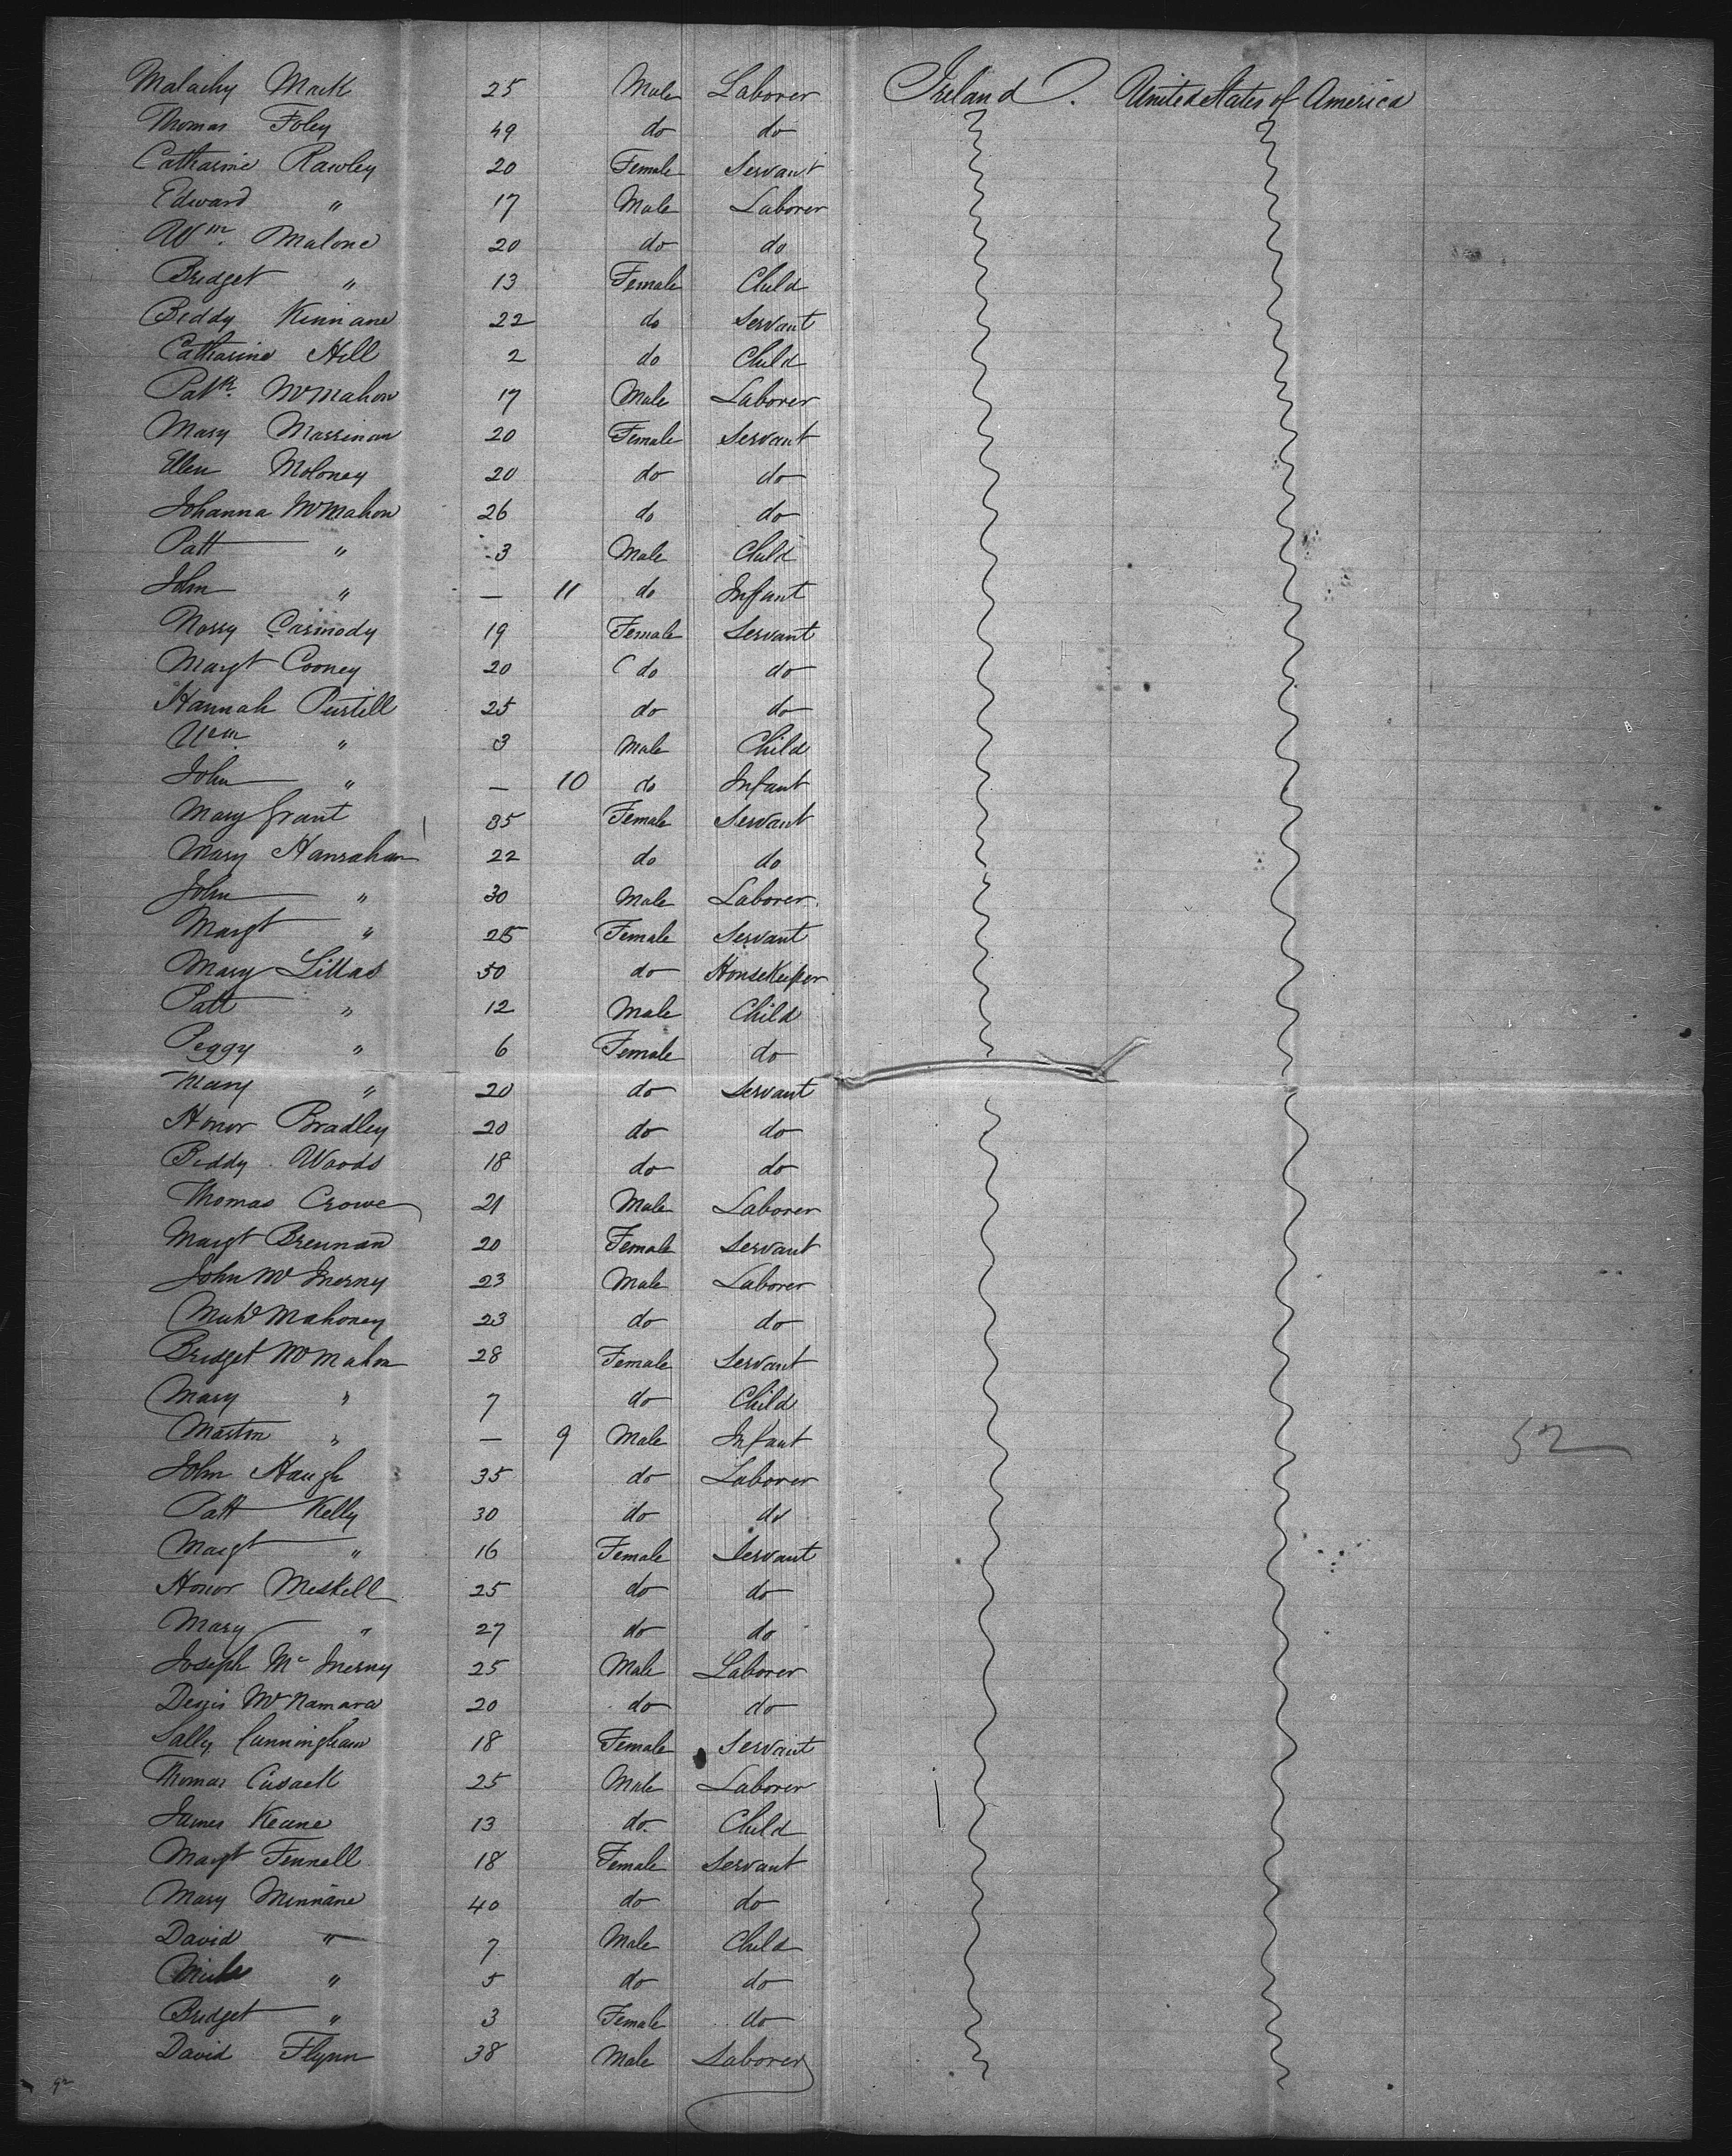 Malachy Mack 25 Male Laborer Ireland. United States of America
Thomas Foley 49 do do
Catharine Rawley 20 Female Servant
Edward " 17 Male Laborer
Wm. Malone 20 do do
Bridget " 13 Female Child
Biddy Kinnane 22 do Servant
Catharine Hill 2 do Child
Patk. McMahon 17 Male Laborer
Mary Marrinan 20 Female Servant
Ellen Moloney 20 do do
Johanna McMahon 26 do do
Patt " 3 Male Child
John " — 11 do Infant
Norry Carmody 19 Female Servant
Margt Cooney 20 do do
Hannah Purtill 25 do do
Wm " 3 Male Child
John " — 10 do Infant
Mary Grant 35 Female Servant
Mary Hanrahan 22 do do
John " 30 Male Laborer.
Margt " 25 Female Servant
Mary Lillas 50 do Housekeeper
Patt " 12 Male Child
Peggy " 6 Female do
Mary " 20 do Servant
Honor Bradley 20 do do
Biddy Woods 18 do do
Thomas Crowe 21 Male Laborer
Margt Brennan 20 Female Servant
John Mc Inerny 23 Male Laborer
Michl Mahoney 23 do do
Bridget McMahon 28 Female Servant
Mary " 7 do Child
Martin " — 9 Male Infant 52
John Haugh 35 do Laborer
Patt Kelly 30 do do
Margt " 16 Female Servant
Honor Meskell 25 do do
Mary " 27 do do
Joseph Mc Inerny 25 Male Laborer
Denis McNamara 20 do do
Sally Cunningham 18 Female Servant
Thomas Cusack 25 Male Laborer
James Keane 13 do. Child
Margt Fennell 18 Female Servant
Mary Minnane 40 do do
David " 7 Male Child
Michl " 5 do do
Bridget " 3 Female do
David Flynn 38 Male Laborer